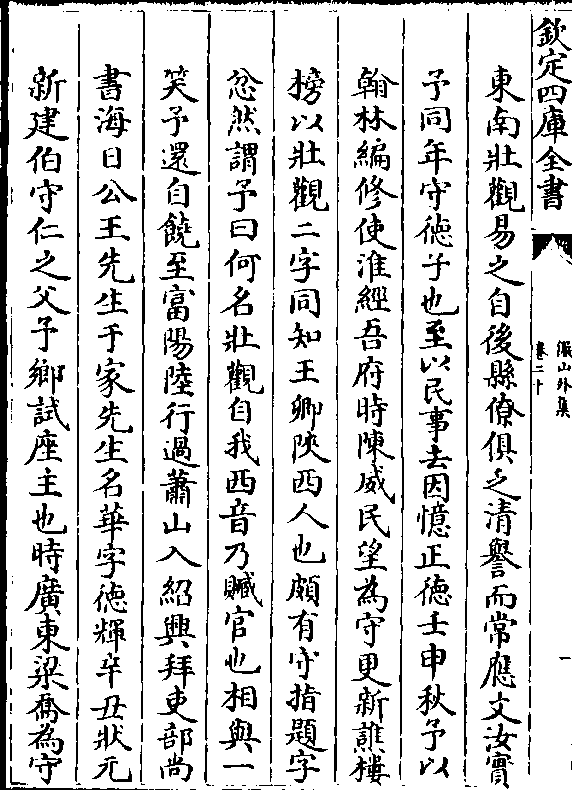 欽定四庫全書
儼山外集
卷二十
一
東南壯觀易之自後縣僚俱乏清譽而常應文汝實
予同年守徳子也至以民事去因憶正徳壬申秋予以
翰林編修使淮經吾府時陳威民望為守更新譙樓
榜以壯觀二字同知王卿陜西人也頗有守指題字
忿然謂予曰何名壯觀自我西音乃贓官也相與一
笑予還自饒至富陽陸行過蕭山入紹興拜吏部尚
書海日公王先生于家先生名華字徳輝辛丑狀元
新建伯守仁之父予鄉試座主也時廣東梁喬為守